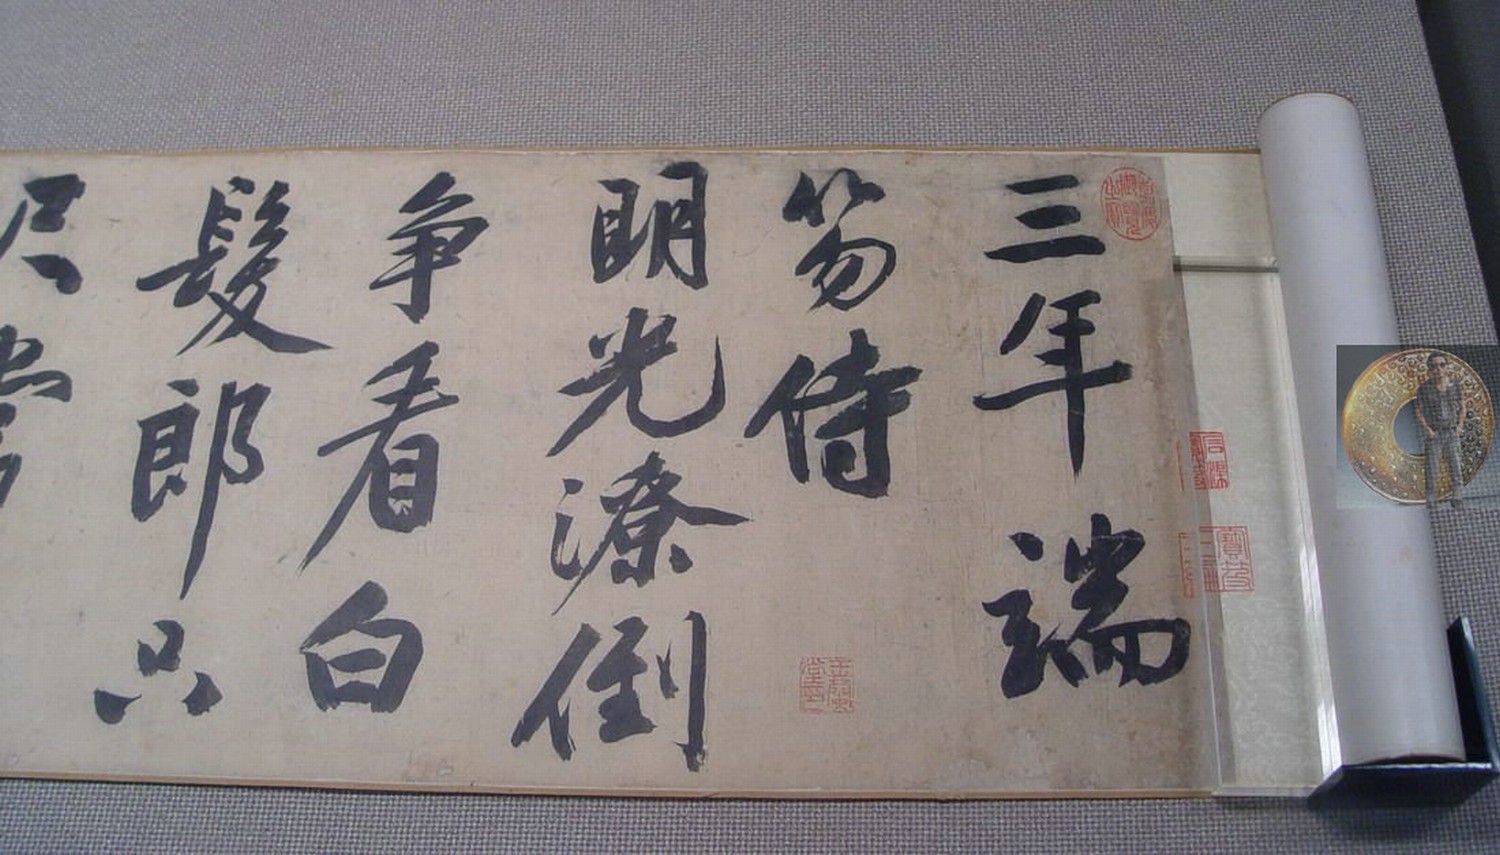 三年端
笏侍
明光潦倒
争看白
髮郎只
尺